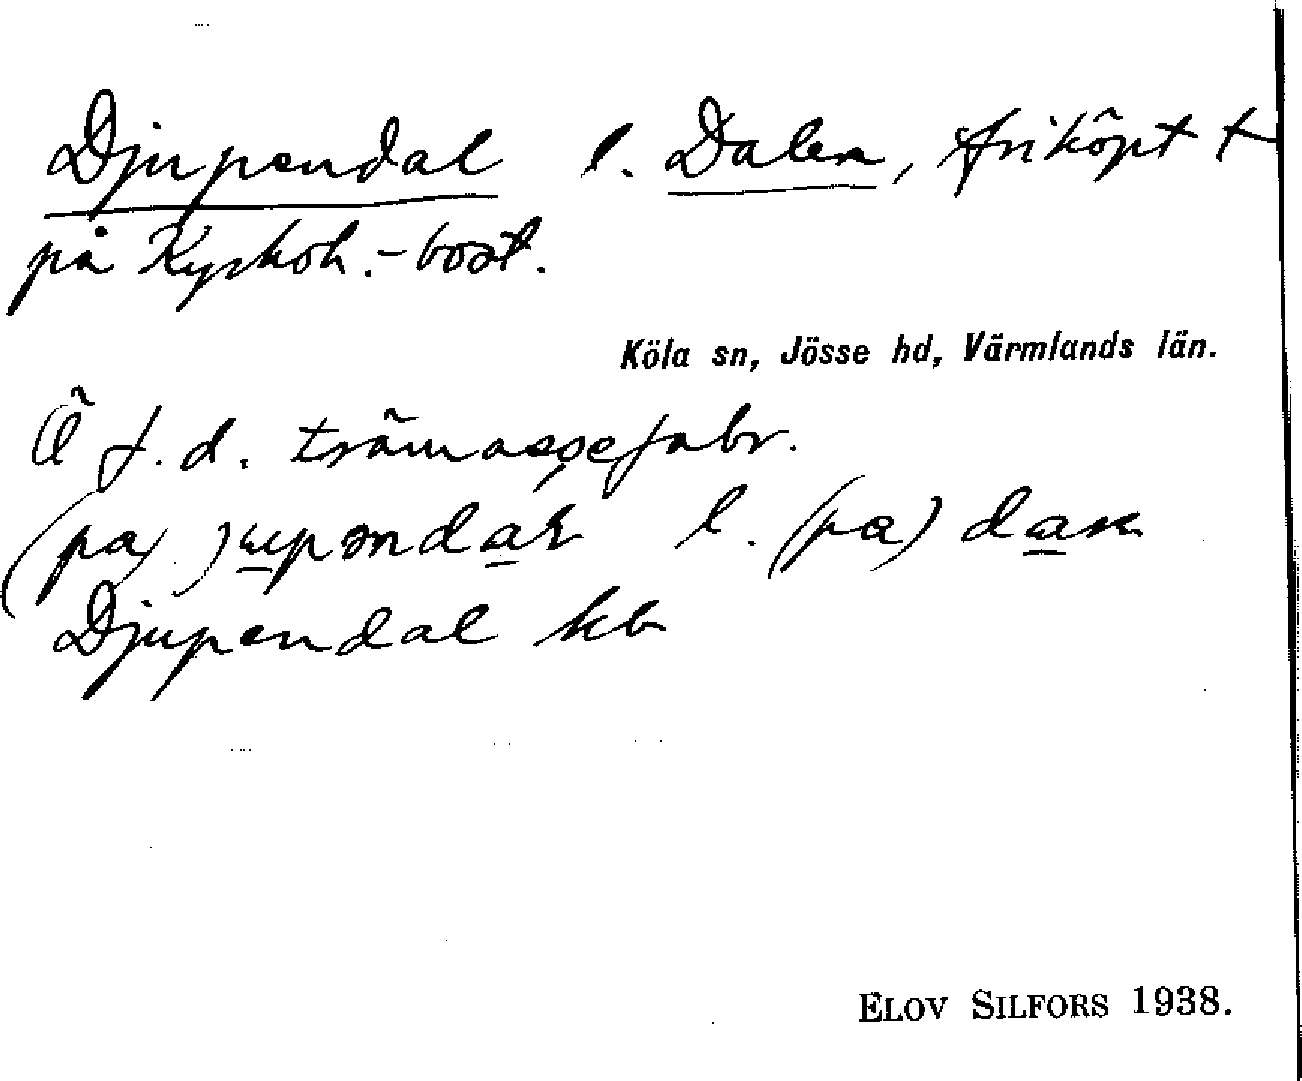 Djupendal l. Dalen, friköpt t
på Kyrkoh.-bost.
Köla sn, Jösse hd, Värmlands län.
Å f.d. trämassefabr.
(pa) jupəndaɽ l. (pa) dan
Djupendal kb
ELOV SILFORS 1938.